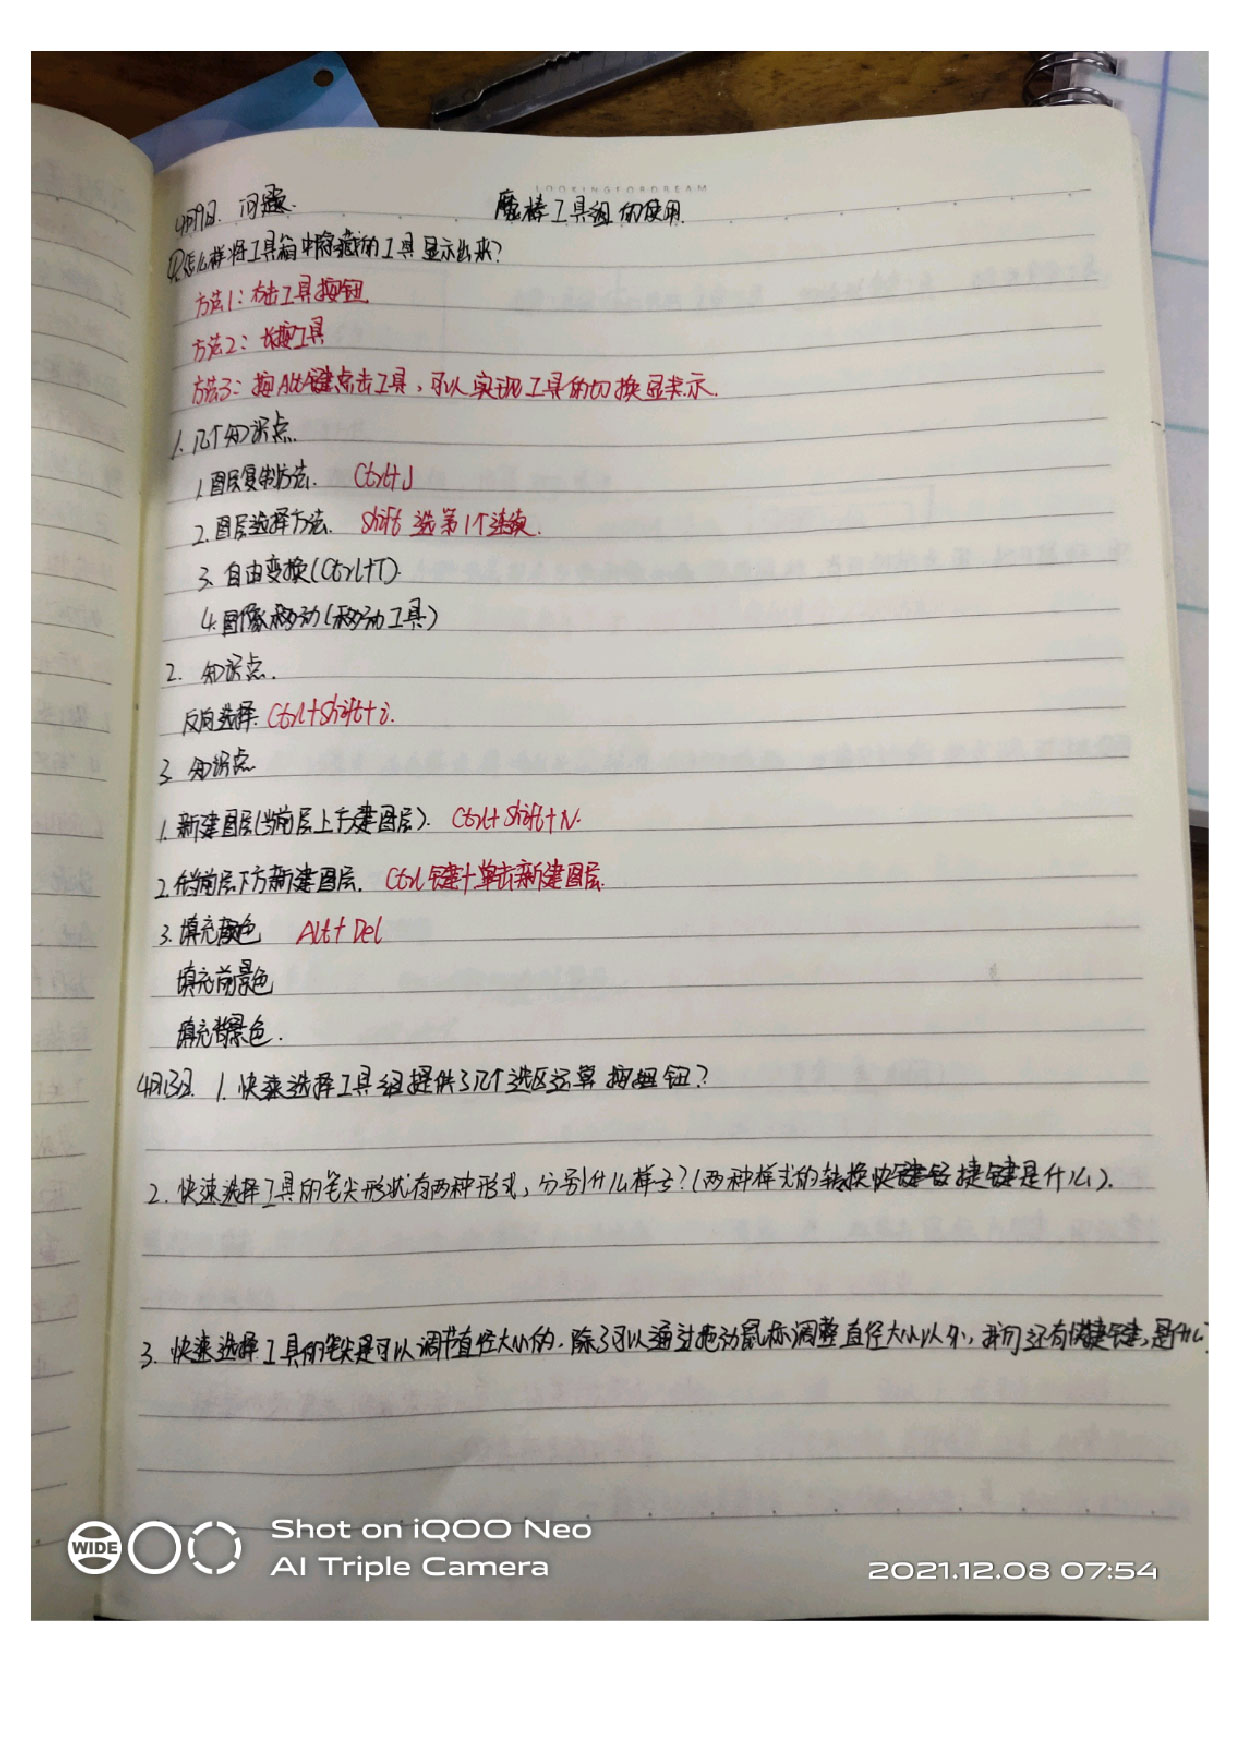 LOOKINGFORDREAM
4月9日. 问题. 魔棒工具组的使用.
①怎么样将工具箱中隐藏的工具显示出来?
方法1: 右击工具按钮
方法2: 长按工具
方法3: 按Alt键点击工具, 可以实现工具的切换显示.
1. 几个知识点.
1. 图层复制方法. Ctrl+J
2. 图层选择方法. Shift 选第1个连续.
3. 自由变换(Ctrl+T).
4. 图像移动(移动工具)
2. 知识点.
反向选择. Ctrl+Shift+i.
3. 知识点
1. 新建图层(当前层上方建图层). Ctrl+Shift+N.
2. 在当前层下方新建图层. Ctrl键+单击新建图层.
3. 填充颜色 Alt+Del
填充前景色
填充背景色.
4月13日. 1. 快速选择工具组提供了几个选区运算按钮?
2. 快速选择工具的笔尖形状有两种形式, 分别什么样子?(两种样式的转换快捷键是什么).
3. 快速选择工具的笔尖是可以调节直径大小的. 除了可以通过拖动鼠标调整直径大小以外, 我们还有快捷键, 是什么?
WIDE
Shot on iQOO Neo
AI Triple Camera
2021.12.08 07:54